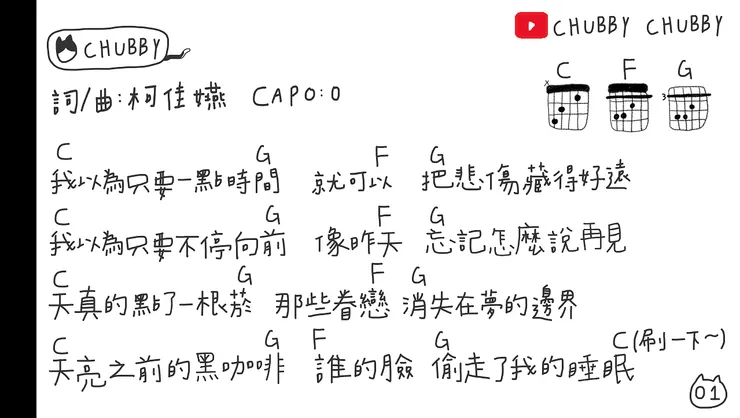 CHUBBY
CHUBBY CHUBBY
詞/曲:柯佳嬿 CAPO:0
C F G
x 3
C G F G
我以為只要一點時間 就可以 把悲傷藏得好遠
C G F G
我以為只要不停向前 像昨天 忘記怎麼說再見
C G F G
天真的點了一根菸 那些眷戀 消失在夢的邊界
C G F G C(刷一下~)
天亮之前的黑咖啡 誰的臉 偷走了我的睡眠
01